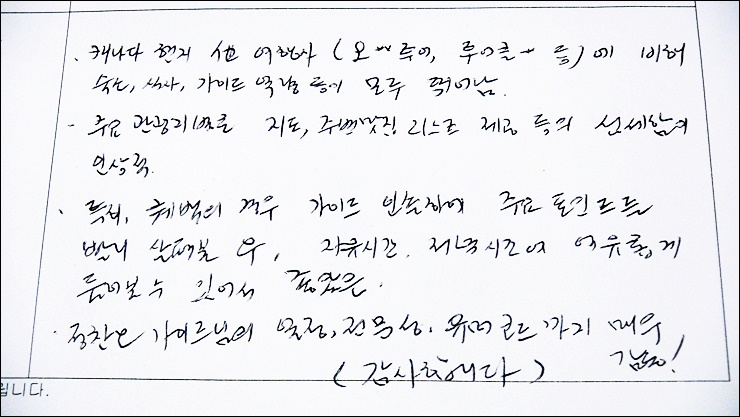 · 캐나다 현지 他 여행사 (오**투어, 루**클** 등)에 비해
숙소, 식사, 가이드 역량 등이 모두 뛰어남.
· 주요 관광지별로 지도, 주변맛집 리스트 제공 등의 섬세함이
인상적.
· 특히, 퀘벡의 경우 가이드 인솔하에 주요 포인트를
빨리 살펴본 후, 자유시간, 저녁시간에 여유롭게
둘러볼 수 있어서 좋았음.
· 정찬오 가이드님의 열정, 전문성, 유머코드까지 매우
감동!
(감사합니다)
립니다.